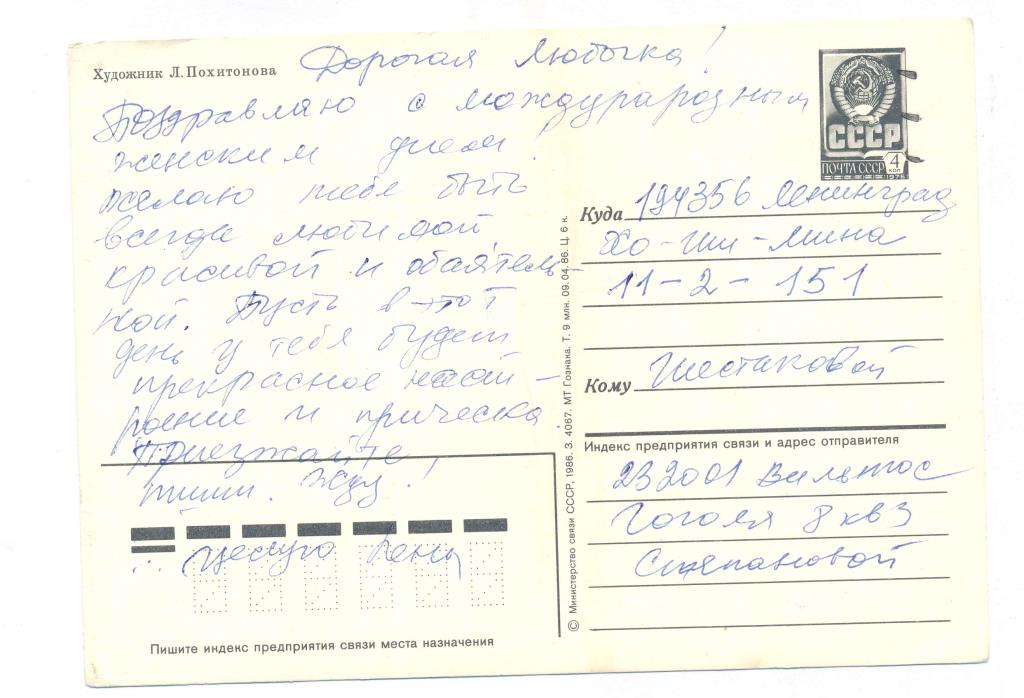 Художник Л. Похитонова
Дорогая Любочка!
Поздравляю с международным
женским днем.
Желаю тебе быть
всегда любимой
красивой и обаятель-
ной. Пусть в этот
день у тебя будет
прекрасное наст-
роение и прическа.
Приезжайте,
пиши. Жду!
... целую
Пишите индекс предприятия связи места назначения
© Министерство связи СССР, 1986. З. 4067. МТ Гознака. Т. 9 млн. 09.04.86. Ц. 6 к.
СССР
ПОЧТА СССР 4 коп
1976
Куда 194356 Ленинград
Хо-Ши-Мина
11-2-151
Кому Шестаковой
Индекс предприятия связи и адрес отправителя
232001 Вильнюс
Гоголя 8 кв 3
Степановой